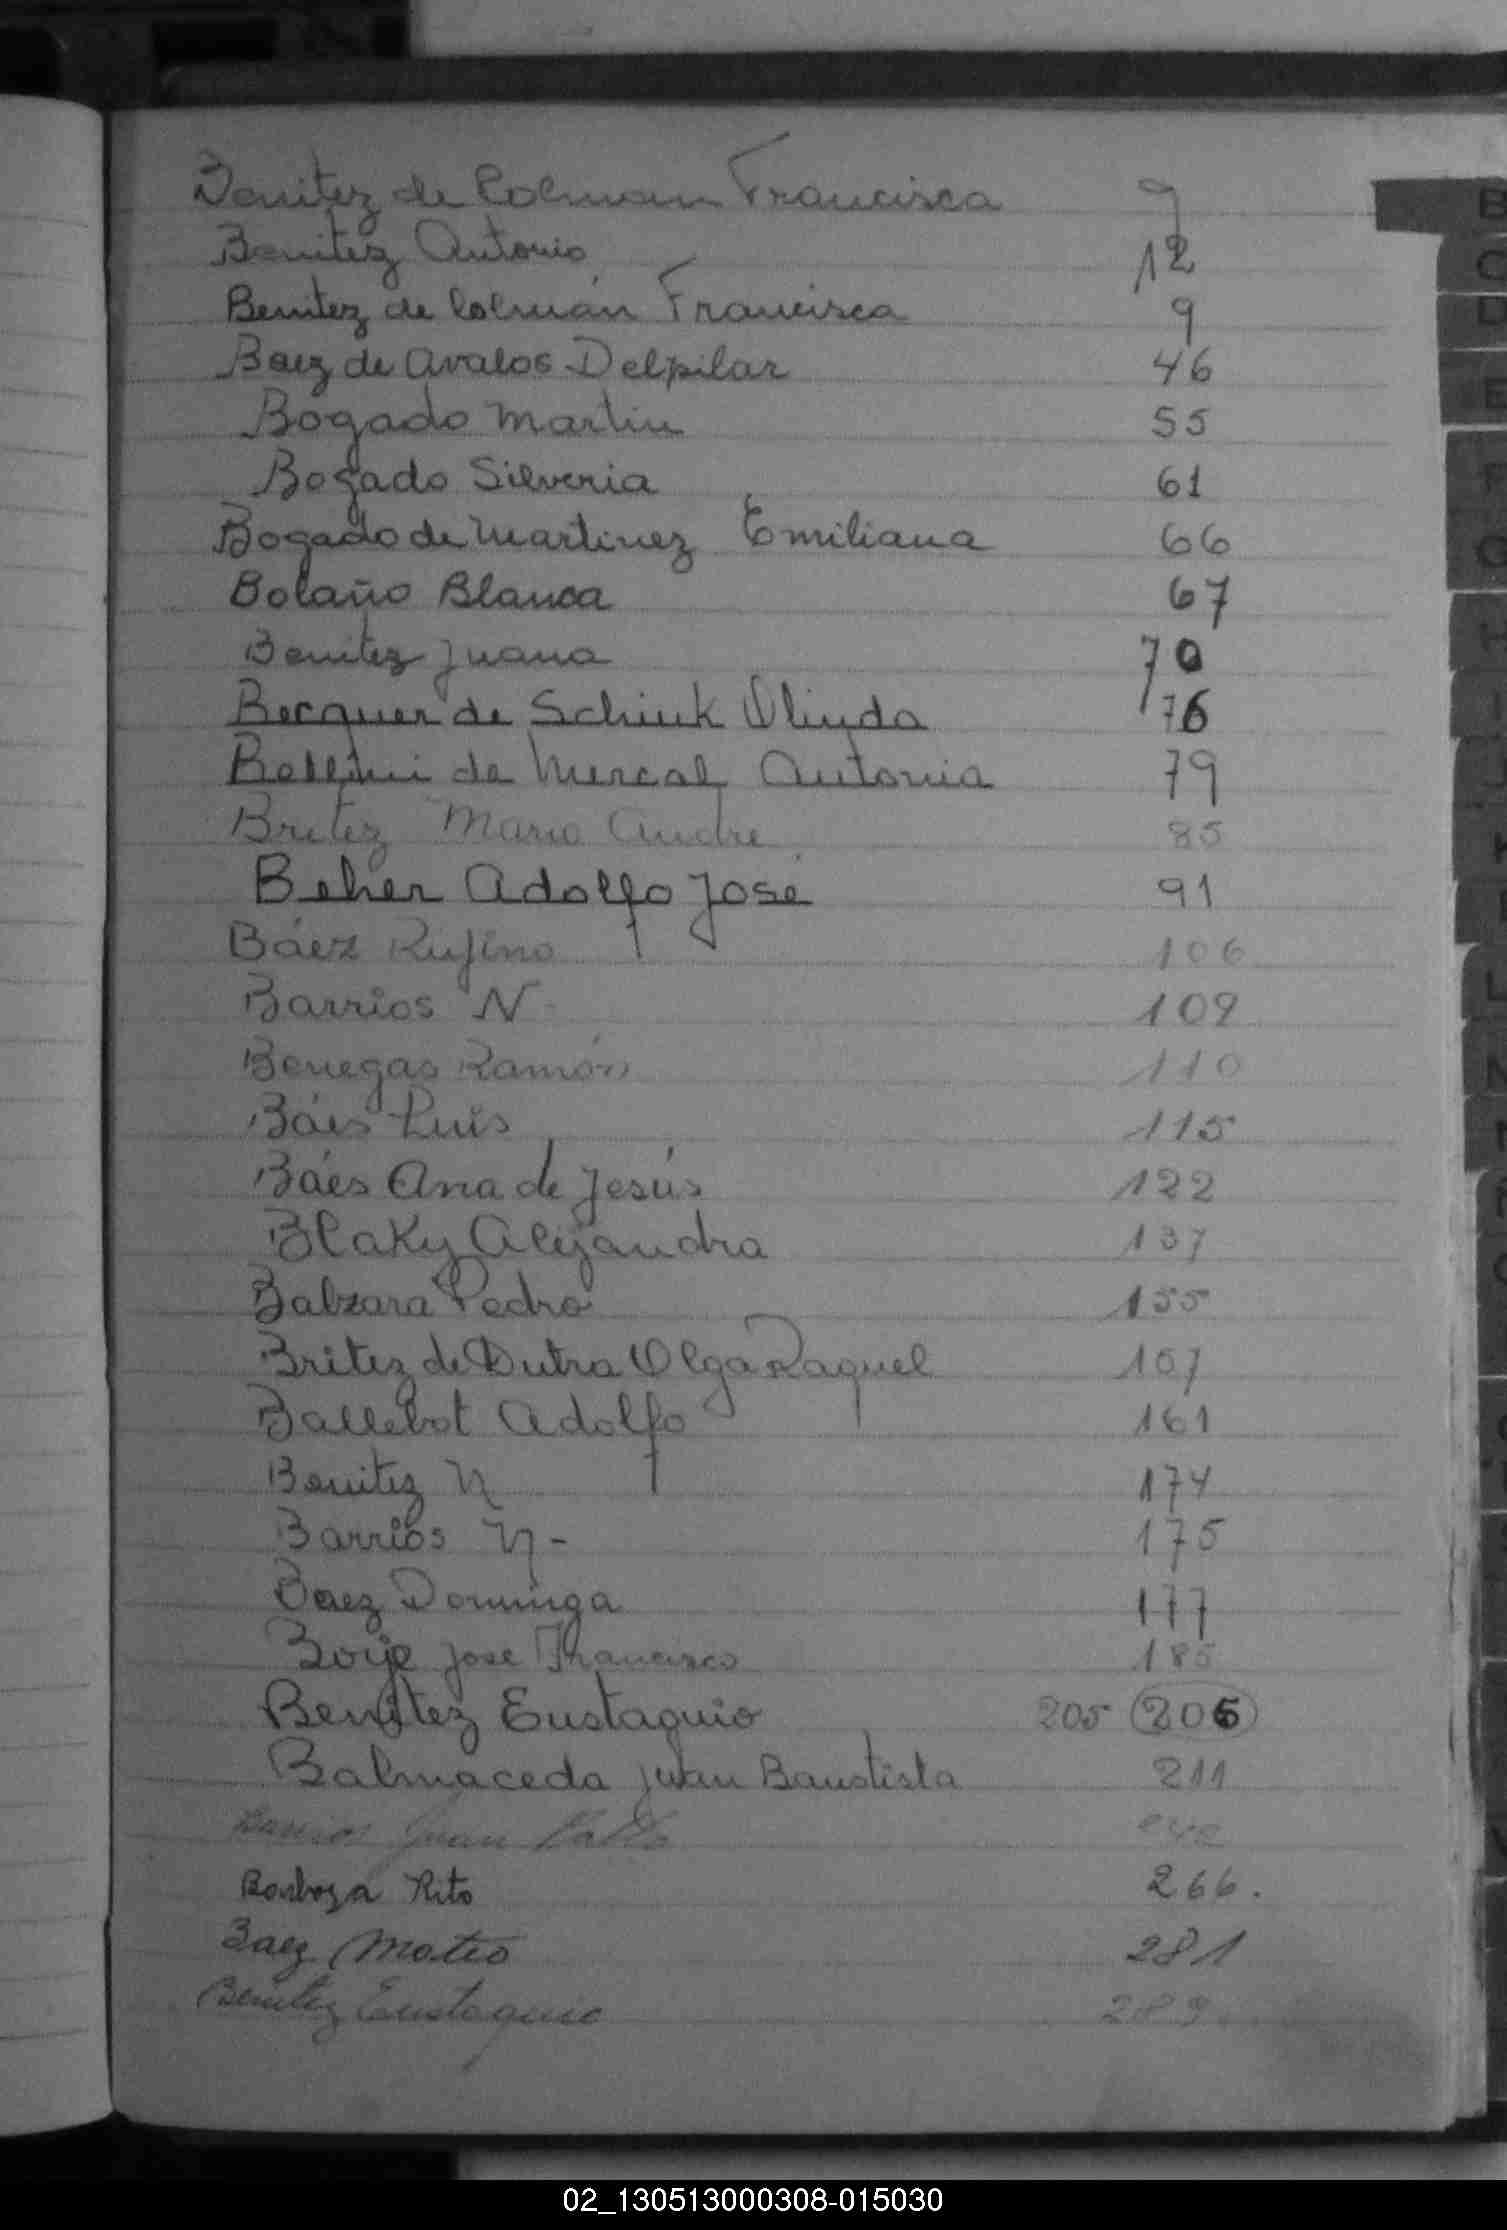 Benitez de Colman Francisca 9
Benitez Antonio 12
Benitez de Colmán Francisca 9
Baez de Avalos Delpilar 46
Bogado Martin 55
Bogado Silveria 61
Bogado de Martinez Emiliana 66
Bolaño Blanca 67
Benitez Juana 70
Becquer de Schink Olinda 76
de Mercal Antonia 79
Britez Mario Andre 85
Beher Adolfo José 91
Báez Rufino 106
Barrios N 109
Benegas Ramón 110
Báes Luis 115
Báes Ana de Jesús 122
Blaky Alejandra 137
Balzara Pedro 155
Britez de Dutra Olga Raquel 157
Ballebot Adolfo 161
Benitez N 174
Barrios N - 175
Baez Dominga 177
Borje Jose Francisco 185
Benitez Eustaquio 205 206
Balmaceda Juan Bautista 211
Barrios Juan
Barboza Rito 266.
Baez Mateo 281
Benitez Eustaquio 289.
B
C
D
E
F
G
H
I
J
K
L
N
02_130513000308-015030